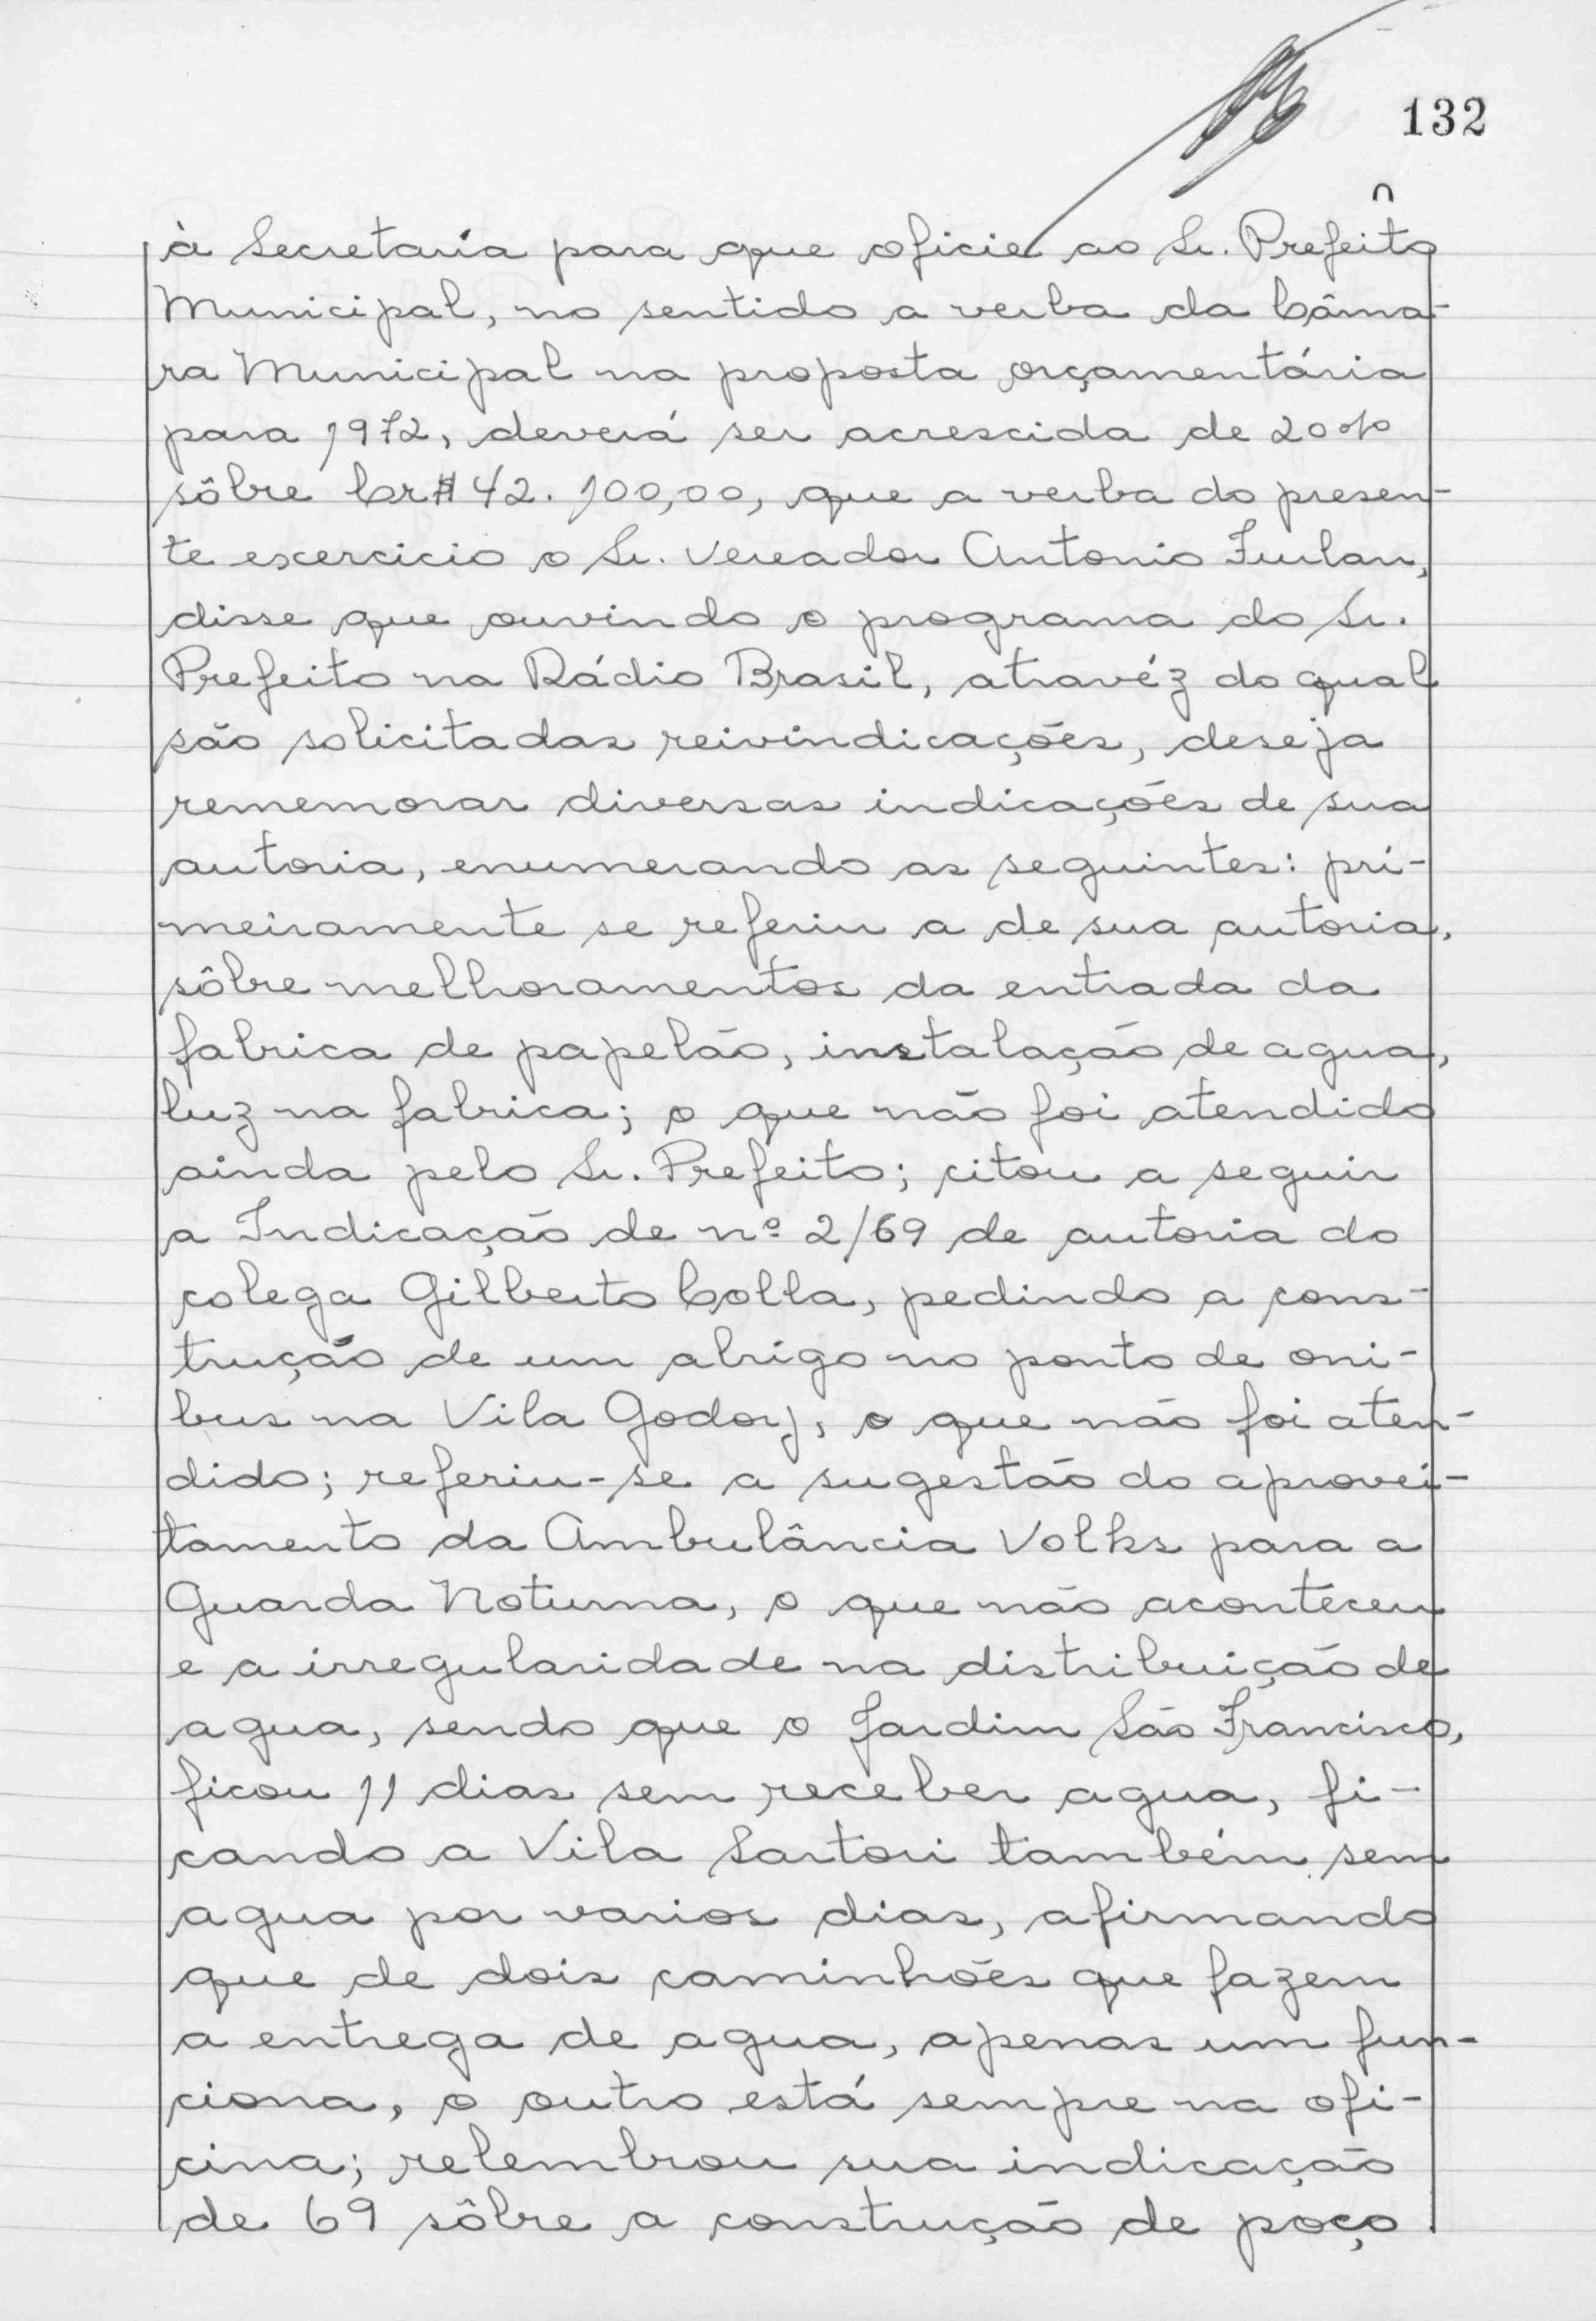 132
à Secretaria para que oficie ao Sr. Prefeito
Municipal, no sentido a verba da Câma-
ra Municipal na proposta orçamentária
para 1972, deverá ser acrescida de 20%
sôbre Cr$ 42.100,00, que a verba do presen-
te excercicio o Sr. Vereador Antonio Furlan,
disse que ouvindo o programa do Sr.
Prefeito na Rádio Brasil, atravéz do qual
são solicitadas reivindicações, deseja
rememorar diversas indicações de sua
autoria, enumerando as seguintes: pri-
meiramente se referiu a de sua autoria,
sôbre melhoramentos da entrada da
fabrica de papelão, instalação de agua,
luz na fabrica; o que não foi atendido
ainda pelo Sr. Prefeito; citou a seguir
a Indicação de nº 2/69 de autoria do
colega Gilberto Colla, pedindo a cons-
trução de um abrigo no ponto de oni-
bus na Vila Godoy, o que não foi aten-
dido; referiu-se a sugestão do aprovei-
tamento da Ambulância Volks para a
Guarda Noturna, o que não aconteceu
e a irregularidade na distribuição de
agua, sendo que o Jardim São Francisco,
ficou 11 dias sem receber agua, fi-
cando a Vila Sartori também sem
agua por varios dias, afirmando
que de dois caminhões que fazem
a entrega de agua, apenas um fun-
ciona, o outro está sempre na ofi-
cina; relembrou sua indicação
de 69 sôbre a construção de poço